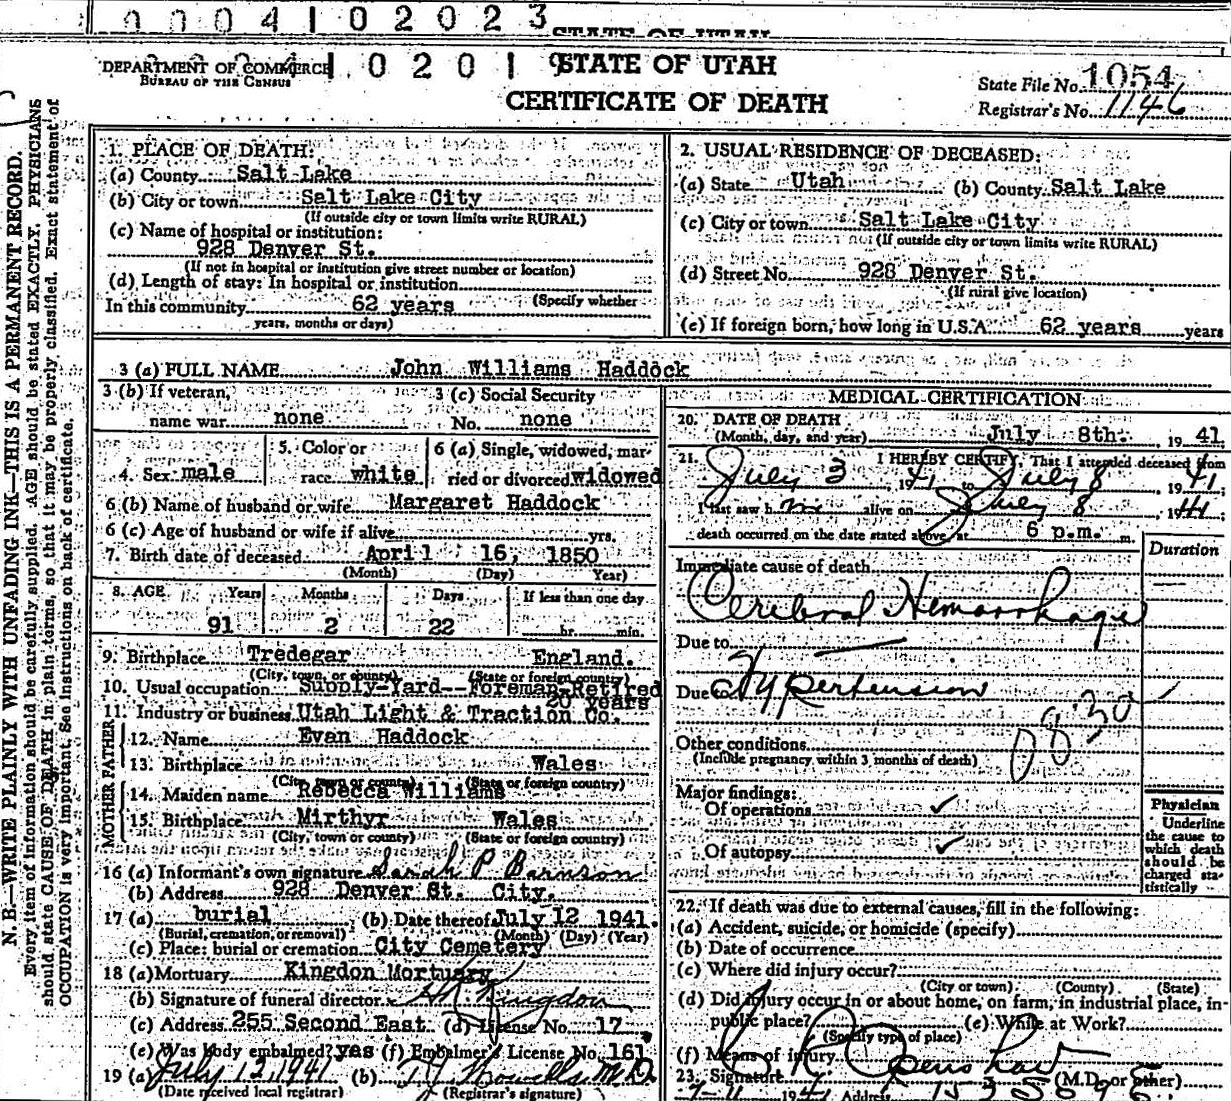 0 0 0 4 1 0 2 0 2 3
STATE OF UTAH
DEPARTMENT OF COMMERCE
BUREAU OF THE CENSUS
1 0 2 0 1 9
STATE OF UTAH
CERTIFICATE OF DEATH
State File No. 1054
Registrar's No. 1146
N. B.—WRITE PLAINLY WITH UNFADING INK—THIS IS A PERMANENT RECORD.
Every item of information should be carefully supplied. AGE should be stated EXACTLY. PHYSICIANS
should state CAUSE OF DEATH in plain terms, so that it may be properly classified. Exact statement of
OCCUPATION is very important. See instructions on back of certificate.
1. PLACE OF DEATH:
(a) County Salt Lake
(b) City or town Salt Lake City
(If outside city or town limits write RURAL)
(c) Name of hospital or institution:
928 Denver St.
(If not in hospital or institution give street number or location)
(d) Length of stay: In hospital or institution
(Specify whether
In this community 62 years
years, months or days)
2. USUAL RESIDENCE OF DECEASED:
(a) State Utah (b) County Salt Lake
(c) City or town Salt Lake City
(If outside city or town limits write RURAL)
(d) Street No. 928 Denver St.
(If rural give location)
(e) If foreign born, how long in U.S.A. 62 years years
3 (a) FULL NAME John Williams Haddock
3 (b) If veteran, name war none
3 (c) Social Security No. none
4. Sex male
5. Color or race white
6 (a) Single, widowed, married or divorced widowed
6 (b) Name of husband or wife Margaret Haddock
6 (c) Age of husband or wife if alive yrs.
7. Birth date of deceased April 16, 1850
(Month) (Day) (Year)
8. AGE Years Months Days If less than one day
91 2 22 hr. min.
9. Birthplace Tredegar England.
(City, town, or county) (State or foreign country)
10. Usual occupation Supply-Yard--Foreman-Retired
20 years
11. Industry or business Utah Light & Traction Co.
FATHER
12. Name Evan Haddock
13. Birthplace Wales
(City, town or county) (State or foreign country)
MOTHER
14. Maiden name Rebecca Williams
15. Birthplace Mirthyr Wales
(City, town or county) (State or foreign country)
16 (a) Informant's own signature Sarah P Barnson
(b) Address 928 Denver St. City.
17 (a) burial (b) Date thereof July 12 1941.
(Burial, cremation, or removal) (Month) (Day) (Year)
(c) Place: burial or cremation City Cemetery
18 (a) Mortuary Kingdon Mortuary
(b) Signature of funeral director Kingdon
(c) Address 255 Second East (d) License No. 17
(e) Was body embalmed? yes (f) Embalmer's License No. 161
19 (a) July 12, 1941 (b) M.D.
(Date received local registrar) (Registrar's signature)
MEDICAL CERTIFICATION
20. DATE OF DEATH
(Month, day, and year) July 8th. 1941
21. I HEREBY CERTIFY, That I attended deceased from
July 3, 1941 to July 8, 1941.
I last saw him alive on July 8, 1941.
death occurred on the date stated above, at 6 p.m. m.
Duration
Immediate cause of death
Cerebral Hemorrhage
Due to
Due to Hypertension
Other conditions
(Include pregnancy within 3 months of death)
Major findings:
Of operations
Of autopsy
Physician
Underline
the cause to
which death
should be
charged sta-
tistically
22. If death was due to external causes, fill in the following:
(a) Accident, suicide, or homicide (specify)
(b) Date of occurrence
(c) Where did injury occur?
(City or town) (County) (State)
(d) Did injury occur in or about home, on farm, in industrial place, in
public place? (e) While at Work?
(Specify type of place)
(f) Means of injury
23. Signature C R Openshaw (M.D. or other)
1941 Address